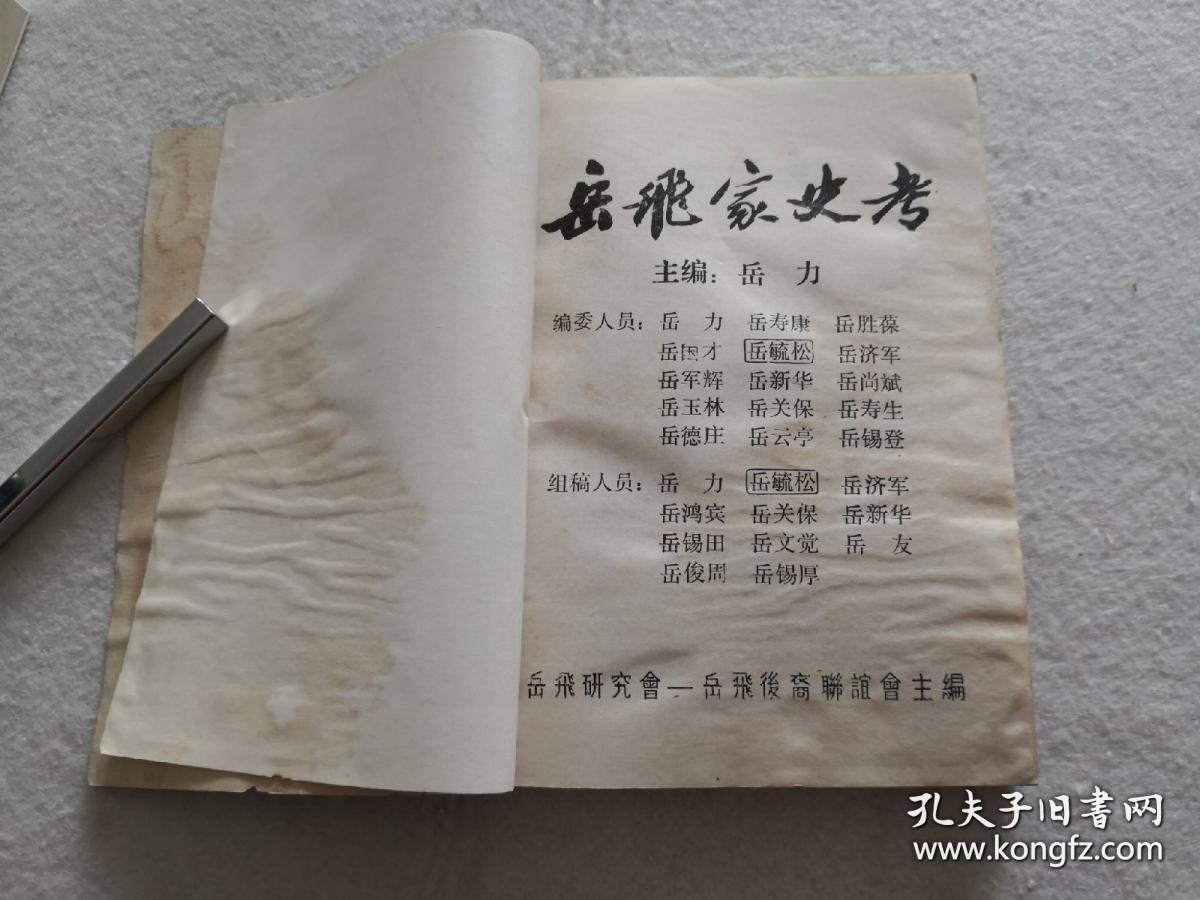 岳飛家史考
主编：岳 力
编委人员：岳 力 岳寿康 岳胜葆
岳国才 岳毓松 岳济军
岳军辉 岳新华 岳尚斌
岳玉林 岳关保 岳寿生
岳德庄 岳云亭 岳锡登
组稿人员：岳 力 岳毓松 岳济军
岳鸿宾 岳关保 岳新华
岳锡田 岳文觉 岳 友
岳俊周 岳锡厚
岳飛研究會—岳飛後裔聯誼會主編
孔夫子旧书网
www.kongfz.com